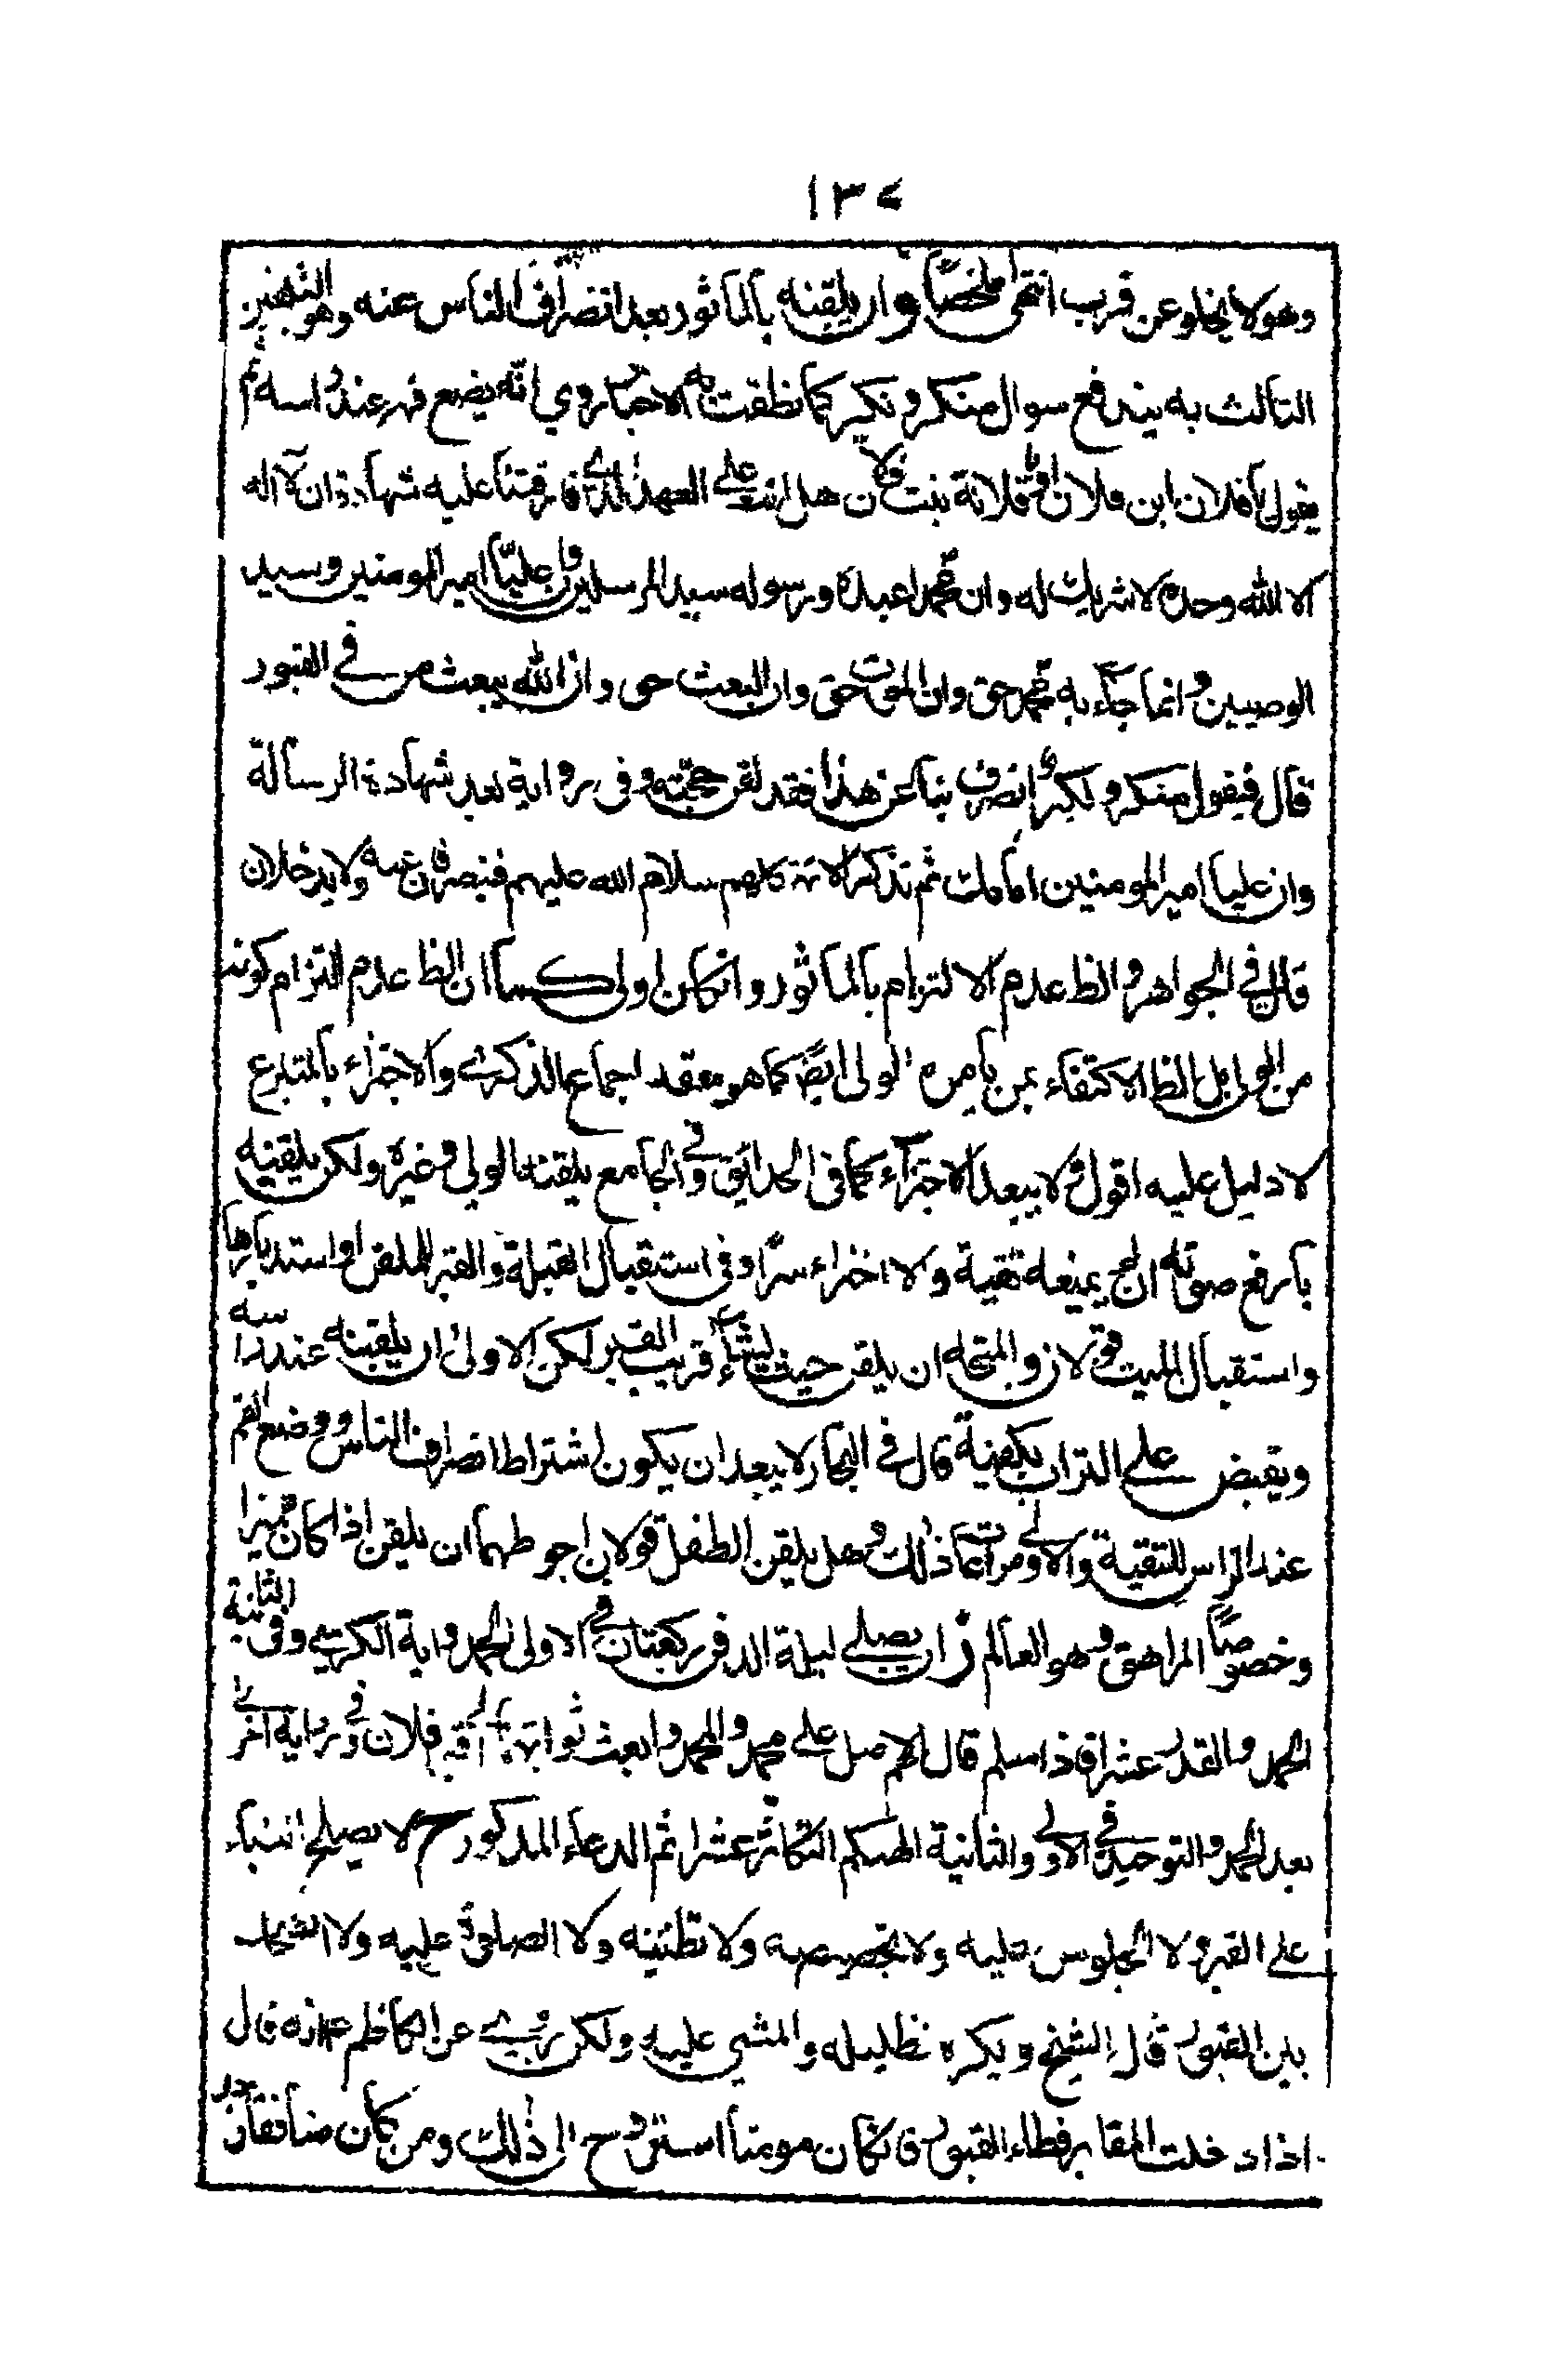 ١٣٧
وهو لا يخلو عن قرب انتهى ملخصاً و ان يلقنه بالماثور بعد انصراف الناس عنه وهو التلقين
الثالث به يندفع سوال منكر و نكير كما نطقت به الاخبار روي انه يضع فمه عند راسه ثم
يقول يا فلان ابن فلان او يا فلانة بنت فلان هل انت على العهد الذي فارقتنا عليه شهادة ان لا اله
الا الله وحده لا شريك له وان محمدا عبده ورسوله سيد المرسلين وان عليّا امير المومنين وسيد
الوصيين و انما جاء به محمد حق وان الموت حق وان البعث حق وان الله يبعث من في القبور
قال فيقول منكر و نكير انصرف بنا عن هذا فقد لقن حجته وفى رواية بعد شهادة الرسالة
وان عليا امير المومنين امامك ثم تذكر الائمة كلهم سلام الله عليهم فينصرفان عنه ولا يدخلان
قال في الجواهر و الظ عدم الالتزام بالماثور وانكان اولى كما ان الظ عدم التزام كونه
من الولي بل الظ الاكتفاء بمن يامره الولى ايضً كما هو معقد اجماع الذكرى والاجزاء بالمتبرع
لا دليل عليه اقول و لا يبعد الاجزاء كما في الحدايق و في الجامع يلقنه الولي و غيره ولكن يلقنه
بارفع صوته ان لم يمنعه تقية والا اجزاء سرّا وفى استقبال القبلة والقبر للملقن او استدبارها
واستقبال الميت قولان والمتجه ان يلقن حيث يشاء قريب القبر لكن الاولى ان يلقنه عند راسه
ويقبض على التراب بكفيه قال في البحار لا يبعد ان يكون اشتراط انصراف الناس ووضع الفم
عند الراس للتقية والاولى مراعات ذلك و هل يلقن الطفل قولان احوطهما ان يلقن اذا كان مميزا
وخصوصاً المراهق و هو العالم ز ان يصلي ليلة الدفن ركعتان في الاولى الحمد و اية الكرسي وفى الثانية
الحمد و القدر عشرا فاذا سلم قال اللهم صل على محمد و ال محمد و ابعث ثوابها الى قبر فلان و في رواية اخرى
بعد الحمد و التوحيد في الاولى والثانية الهيكم التكاثر عشرا ثم الدعاء المذكور ح لا يصلح البناء
على القبر و لا الجلوس عليه ولا تجصيصه ولا تطيينه ولا الصلوة عليه ولا
بين القبور قال الشيخ و يكره تظليله والمشي عليه ولكن روي عن الكاظم ع انه قال
اذا دخلت المقابر فطاء القبور فانكان مومنا استروح الى ذلك ومن كان منافقا وجد